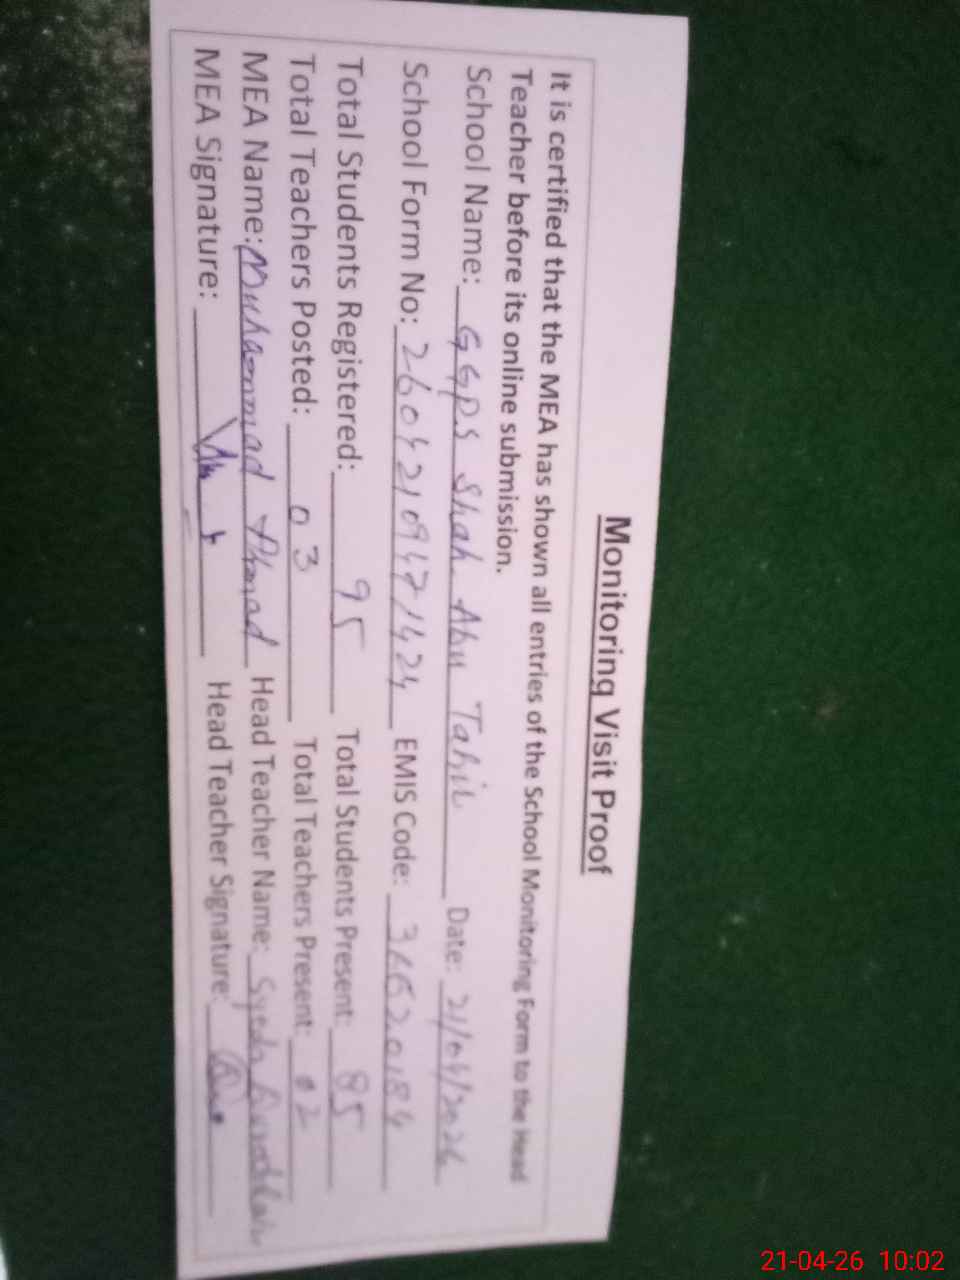 Monitoring Visit Proof
It is certified that the MEA has shown all entries of the School Monitoring Form to the Head
Teacher before its online submission.
School Name: GGPS Shah Abu Tahir Date: 21/04/2026
School Form No: 26042109471424 EMIS Code: 36620184
Total Students Registered: 95 Total Students Present: 85
Total Teachers Posted: 03 Total Teachers Present: 02
MEA Name: Muhammad Ahmad Head Teacher Name: Syeda
MEA Signature: Head Teacher Signature:
21-04-26 10:02